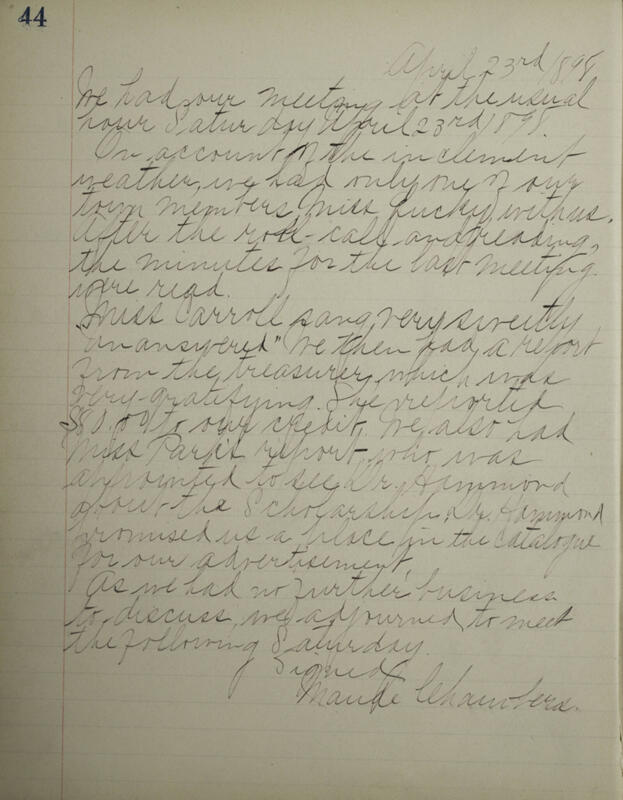 44
April 23rd 1898
We had our meeting at the usual
hour Saturday April 23rd 1898.
On account of the inclement
weather, we had only one of our
town members Miss Lucky with us.
After the roll-call and reading,
the minutes for the last meeting
were read.
Miss Carroll sang very sweetly
"Unanswered" We then had a report
from the treasurer, which was
very gratifying. She reported
$80.00 to our credit. We also had
Miss Park's report, who was
appointed to see Dr. Hammond
about the Scholarship. Dr. Hammond
promised us a place in the catalogue
for our advertisement.
As we had no further business
to discuss, we adjourned to meet
the following Saturday.
Signed
Maude Chambers.